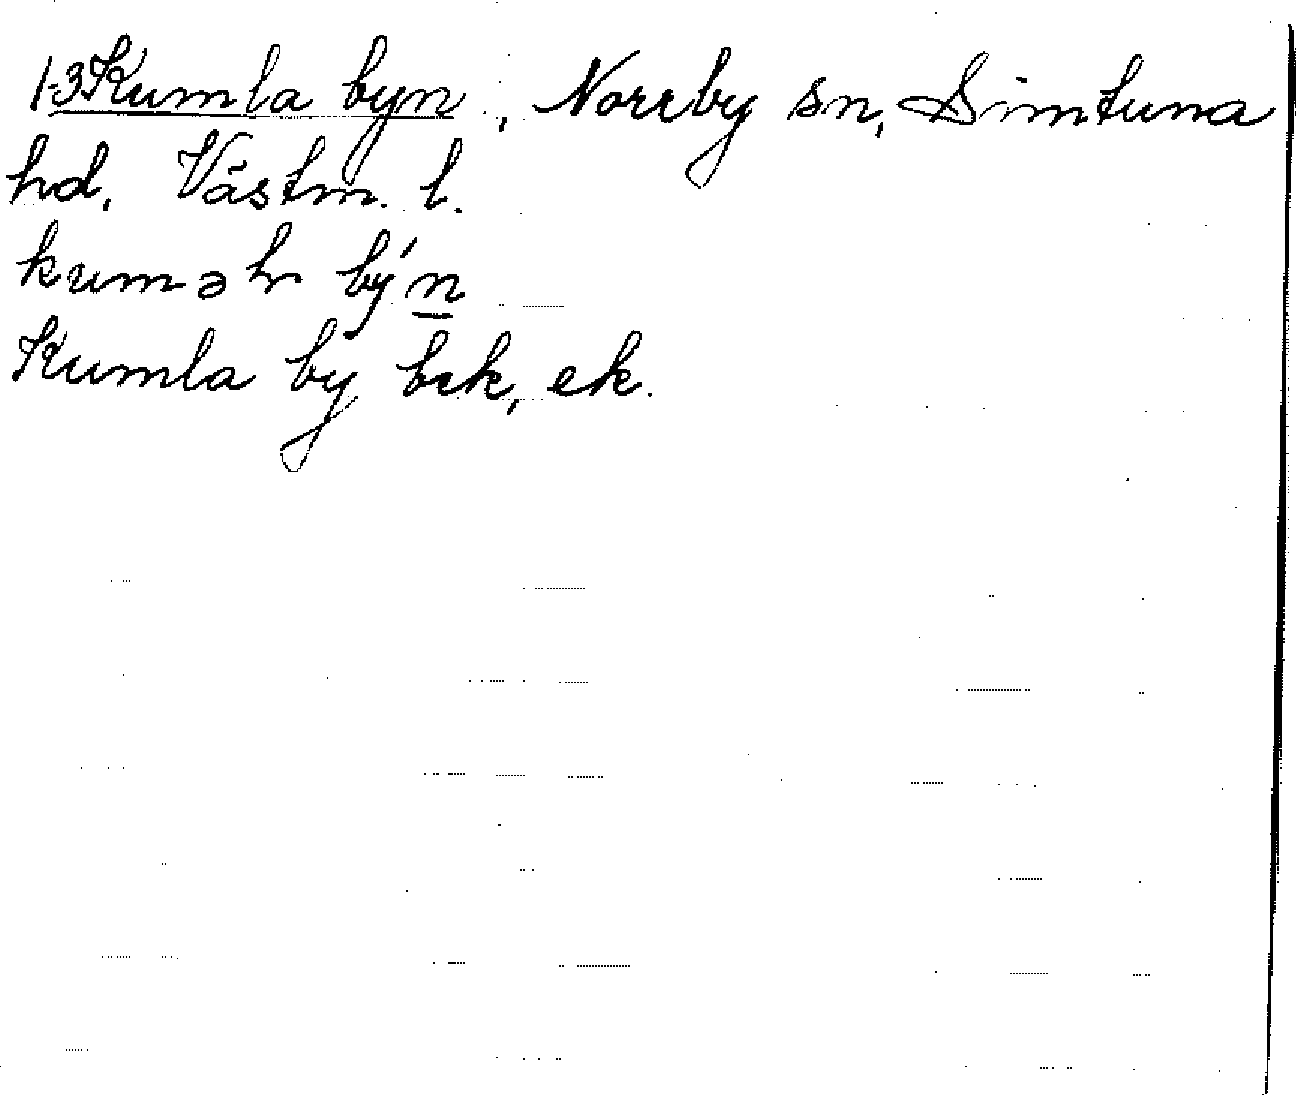 1-3 Kumla byn, Norrby sn, Simtuna
hd, Västm. l.
kuməh by´n
Kumla by brk, ek.